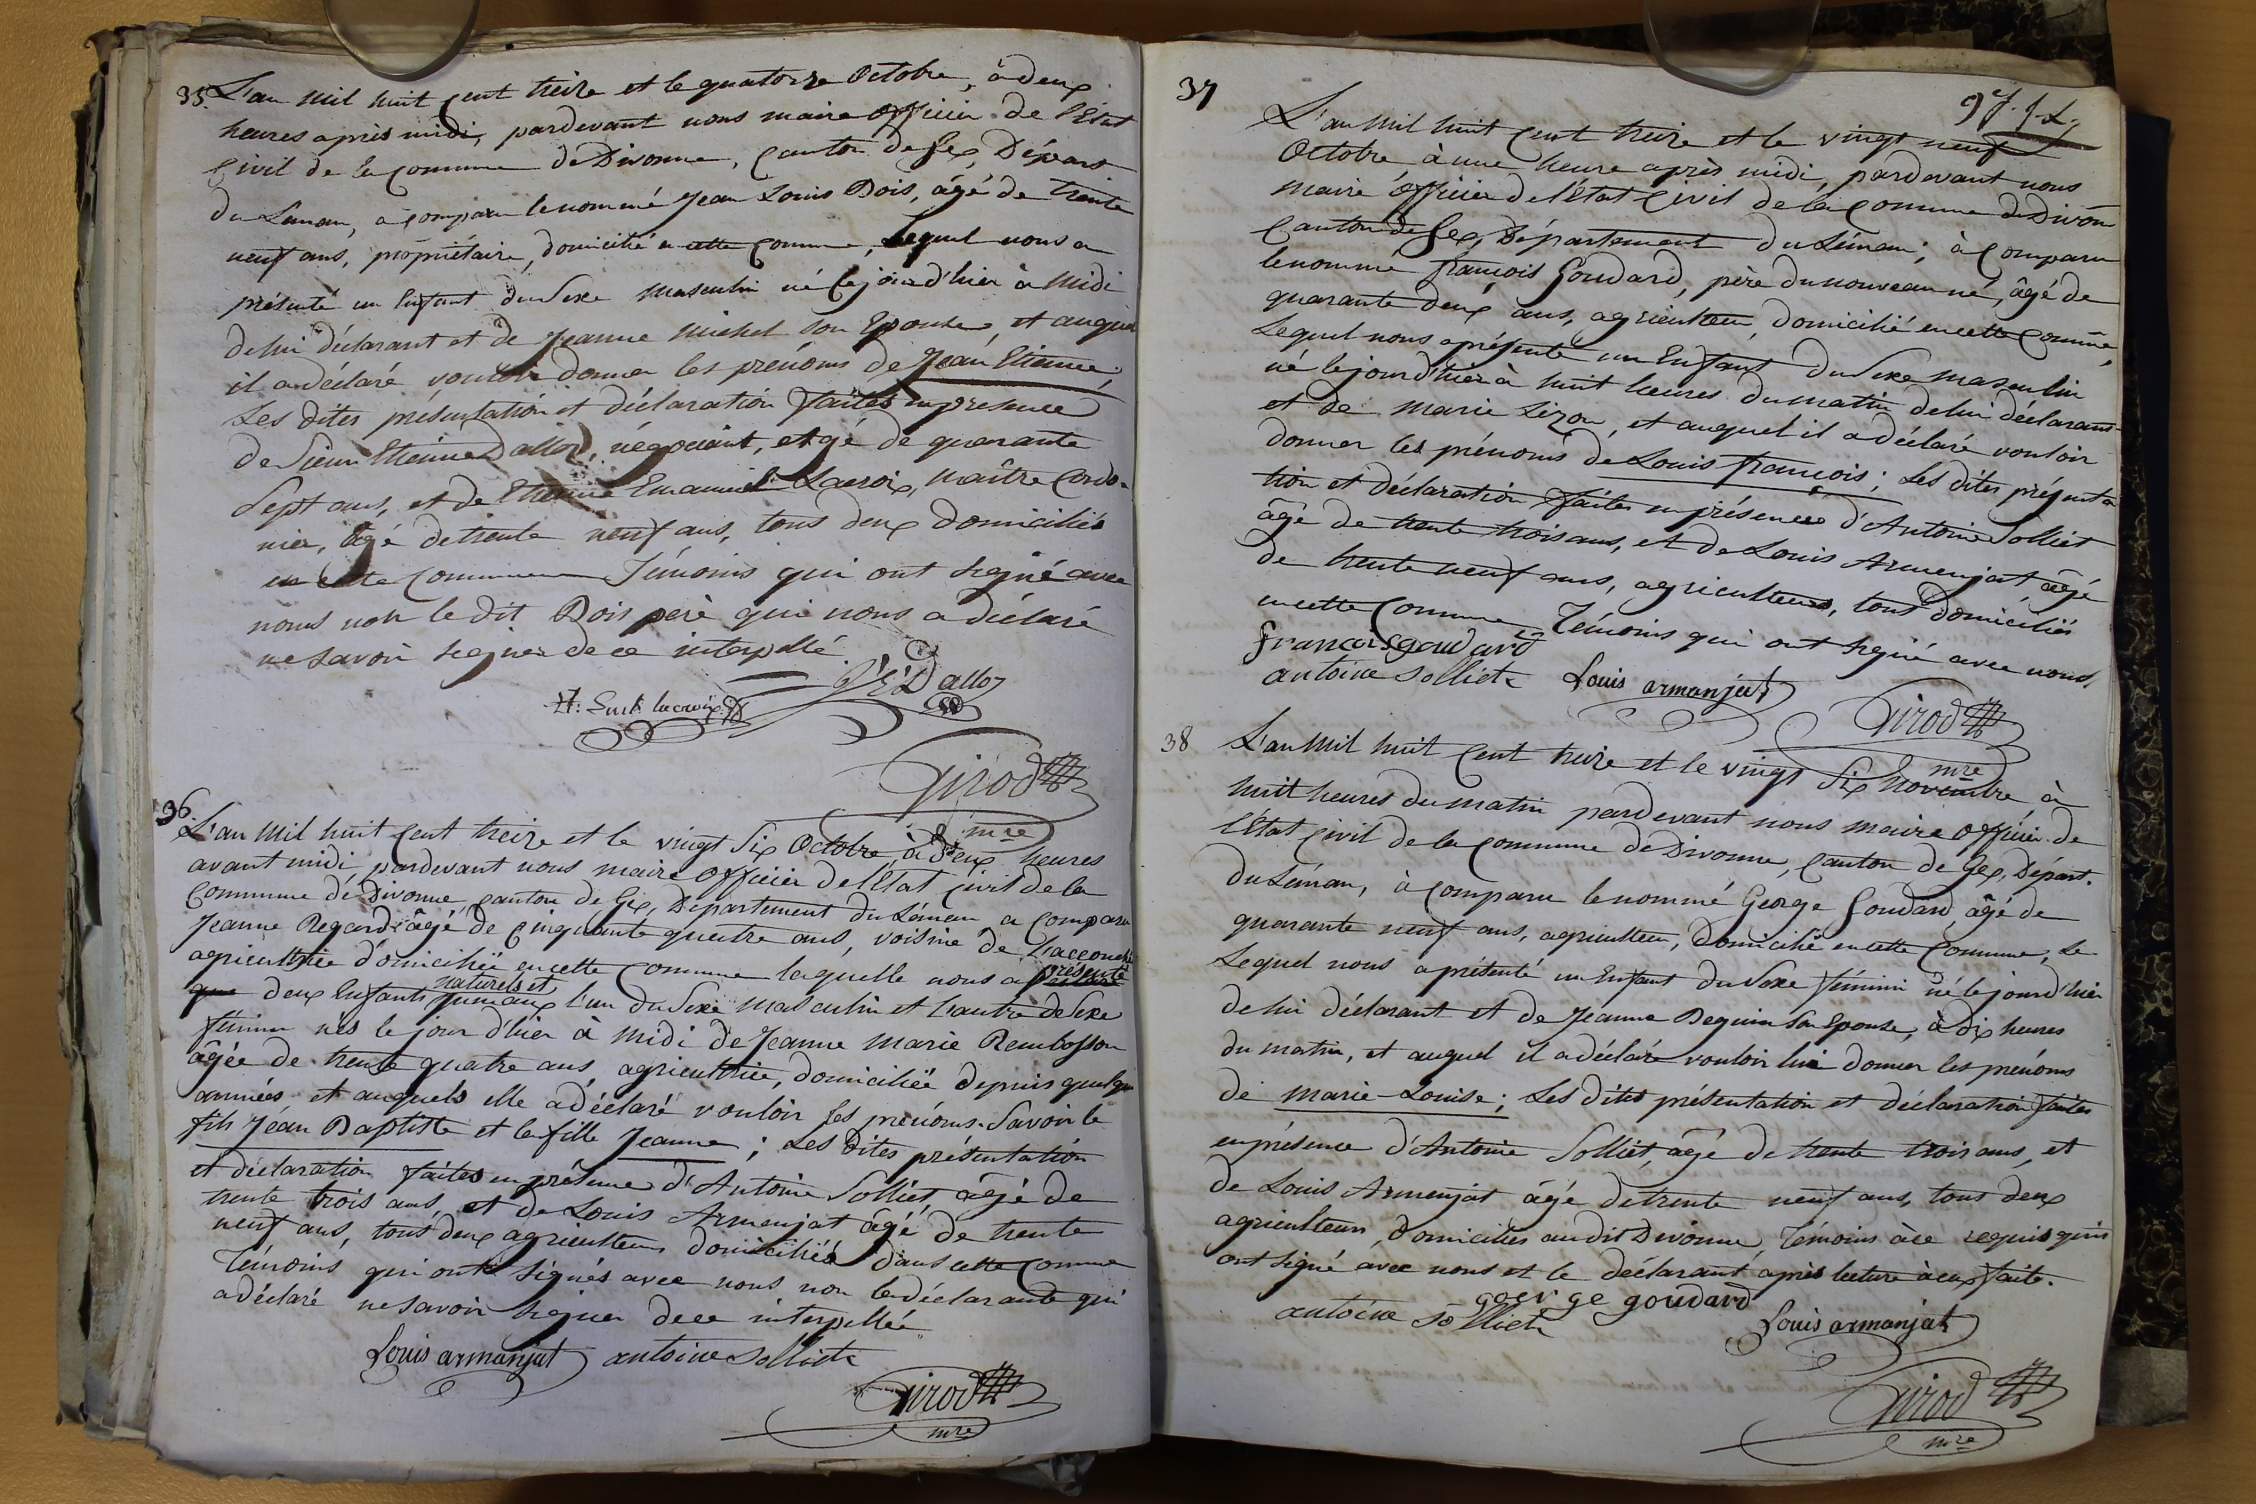 35.
L'an mil huit cent treize et le quatorze Octobre, à deux
heures après midi, pardevant nous maire officier de l'Etat
Civil de la Commune de Divonne, Canton de Gex, Départ
du Leman, a comparu le nommé Jean Louis Bois, âgé de trente
neuf ans, propriétaire, domicilié en cette Commune, lequel nous a
présenté un Enfant du Sexe masculin né le jour d'hier à Midi
de lui déclarant et de Jeanne Michel son Epouse, et auquel
il a déclaré vouloir donner les prénoms de Jean Etienne;
Les dites présentation et déclaration faites en présence
de Sieur Etienne Dalloz, négociant, âgé de quarante
Sept ans, et de Etienne Emanuel Lacroix, maître Cordo-
nier, âgé de trente neuf ans, tous deux domiciliés
en cette Commune Témoins qui ont signé avec
nous non le dit Bois père qui nous a déclaré
ne savoir signer de ce interpellé
J E Dalloz
lacroix
Girod
mre
36.
L'an Mil huit cent treize et le vingt Six Octobre, à deux heures
avant midi pardevant nous maire officier de l'Etat Civil de la
Commune de Divonne, canton de Gex, Département du Léman a comparu
Jeanne Regard âgé de cinquante quatre ans, voisine de l'accouchée
agricultrice domiciliée en cette Commune laquelle nous a présenté
naturels et
que deux Enfants jumeaux l'un du Sexe masculin et l'autre de Sexe
féminin nés le jour d'hier à midi de Jeanne Marie Rembosson
âgée de trente quatre ans agricultrice, domiciliée depuis quelque
années et auquels elle a déclaré vouloir les prénoms. Savoir le
fils Jean Baptiste et la fille Jeanne; Les dites présentation
et déclaration faites en présence d'Antoine Solliet, âgé de
trente trois ans, et de Louis Armenjat âgé de trente
neuf ans, tous deux agriculteurs domiciliés dans cette Commune
Témoins qui ont signés avec nous non la déclarante qui
a déclaré ne savoir signer de ce interpellée
Louis armanjat antoine solliet
Girod
mre
97.
37
L'an Mil huit cent treize et le vingt neuf
Octobre à une heure après midi, pardevant nous
maire officier de l'Etat Civil de la Commune de Divonne
Canton de Gex, Département du Léman; à Comparu
le nommé françois Goudard, père du nouveau né, âgé de
quarante deux ans, agriculteur, domicilié en cette Commune,
Lequel nous a présenté un Enfant du Sexe masculin
né le jour d'hier à huit heures du matin de lui déclarant
et de Marie Lizon, et auquel il a déclaré vouloir
donner les prénoms de Louis françois; Les dites présenta
tion et déclaration faites en présence d'Antoine Solliet
âgé de trente trois ans, et de Louis Armenjat, âgé
de trente neuf ans, agriculteurs, tous domiciliés
en cette Commune Témoins qui ont signé avec nous
françois goudard
antoine solliet Louis armanjat
Girod
mre
38
L'an Mil huit cent treize et le vingt Six Novembre à
huit heures du matin pardevant nous maire officier de
l'Etat Civil de la Commune de Divonne, Canton de Gex, Départ.
du Léman, à comparu le nommé George Goudard, âgé de
quarante neuf ans, agriculteur, domicilié en cette Commune, Le
Lequel nous a présenté un Enfant du Sexe féminin né le jour d'hier
de lui déclarant et de Jeanne Deguin son Epouse, à dix heures
du matin, et auquel il a déclaré vouloir lui donner les prénoms
de Marie-Louise; Les dites présentation et déclaration faites
en présence d'Antoine Solliet, âgé de trente trois ans, et
de Louis Armenjat âgé de trente neuf ans, tous deux
agriculteurs, domiciliés au dit Divonne, Témoins à ce requis qui
ont signé avec nous et le déclarant après lecture à eux faite.
goerge goudard
antoine solliet Louis armanjat
Girod
mre